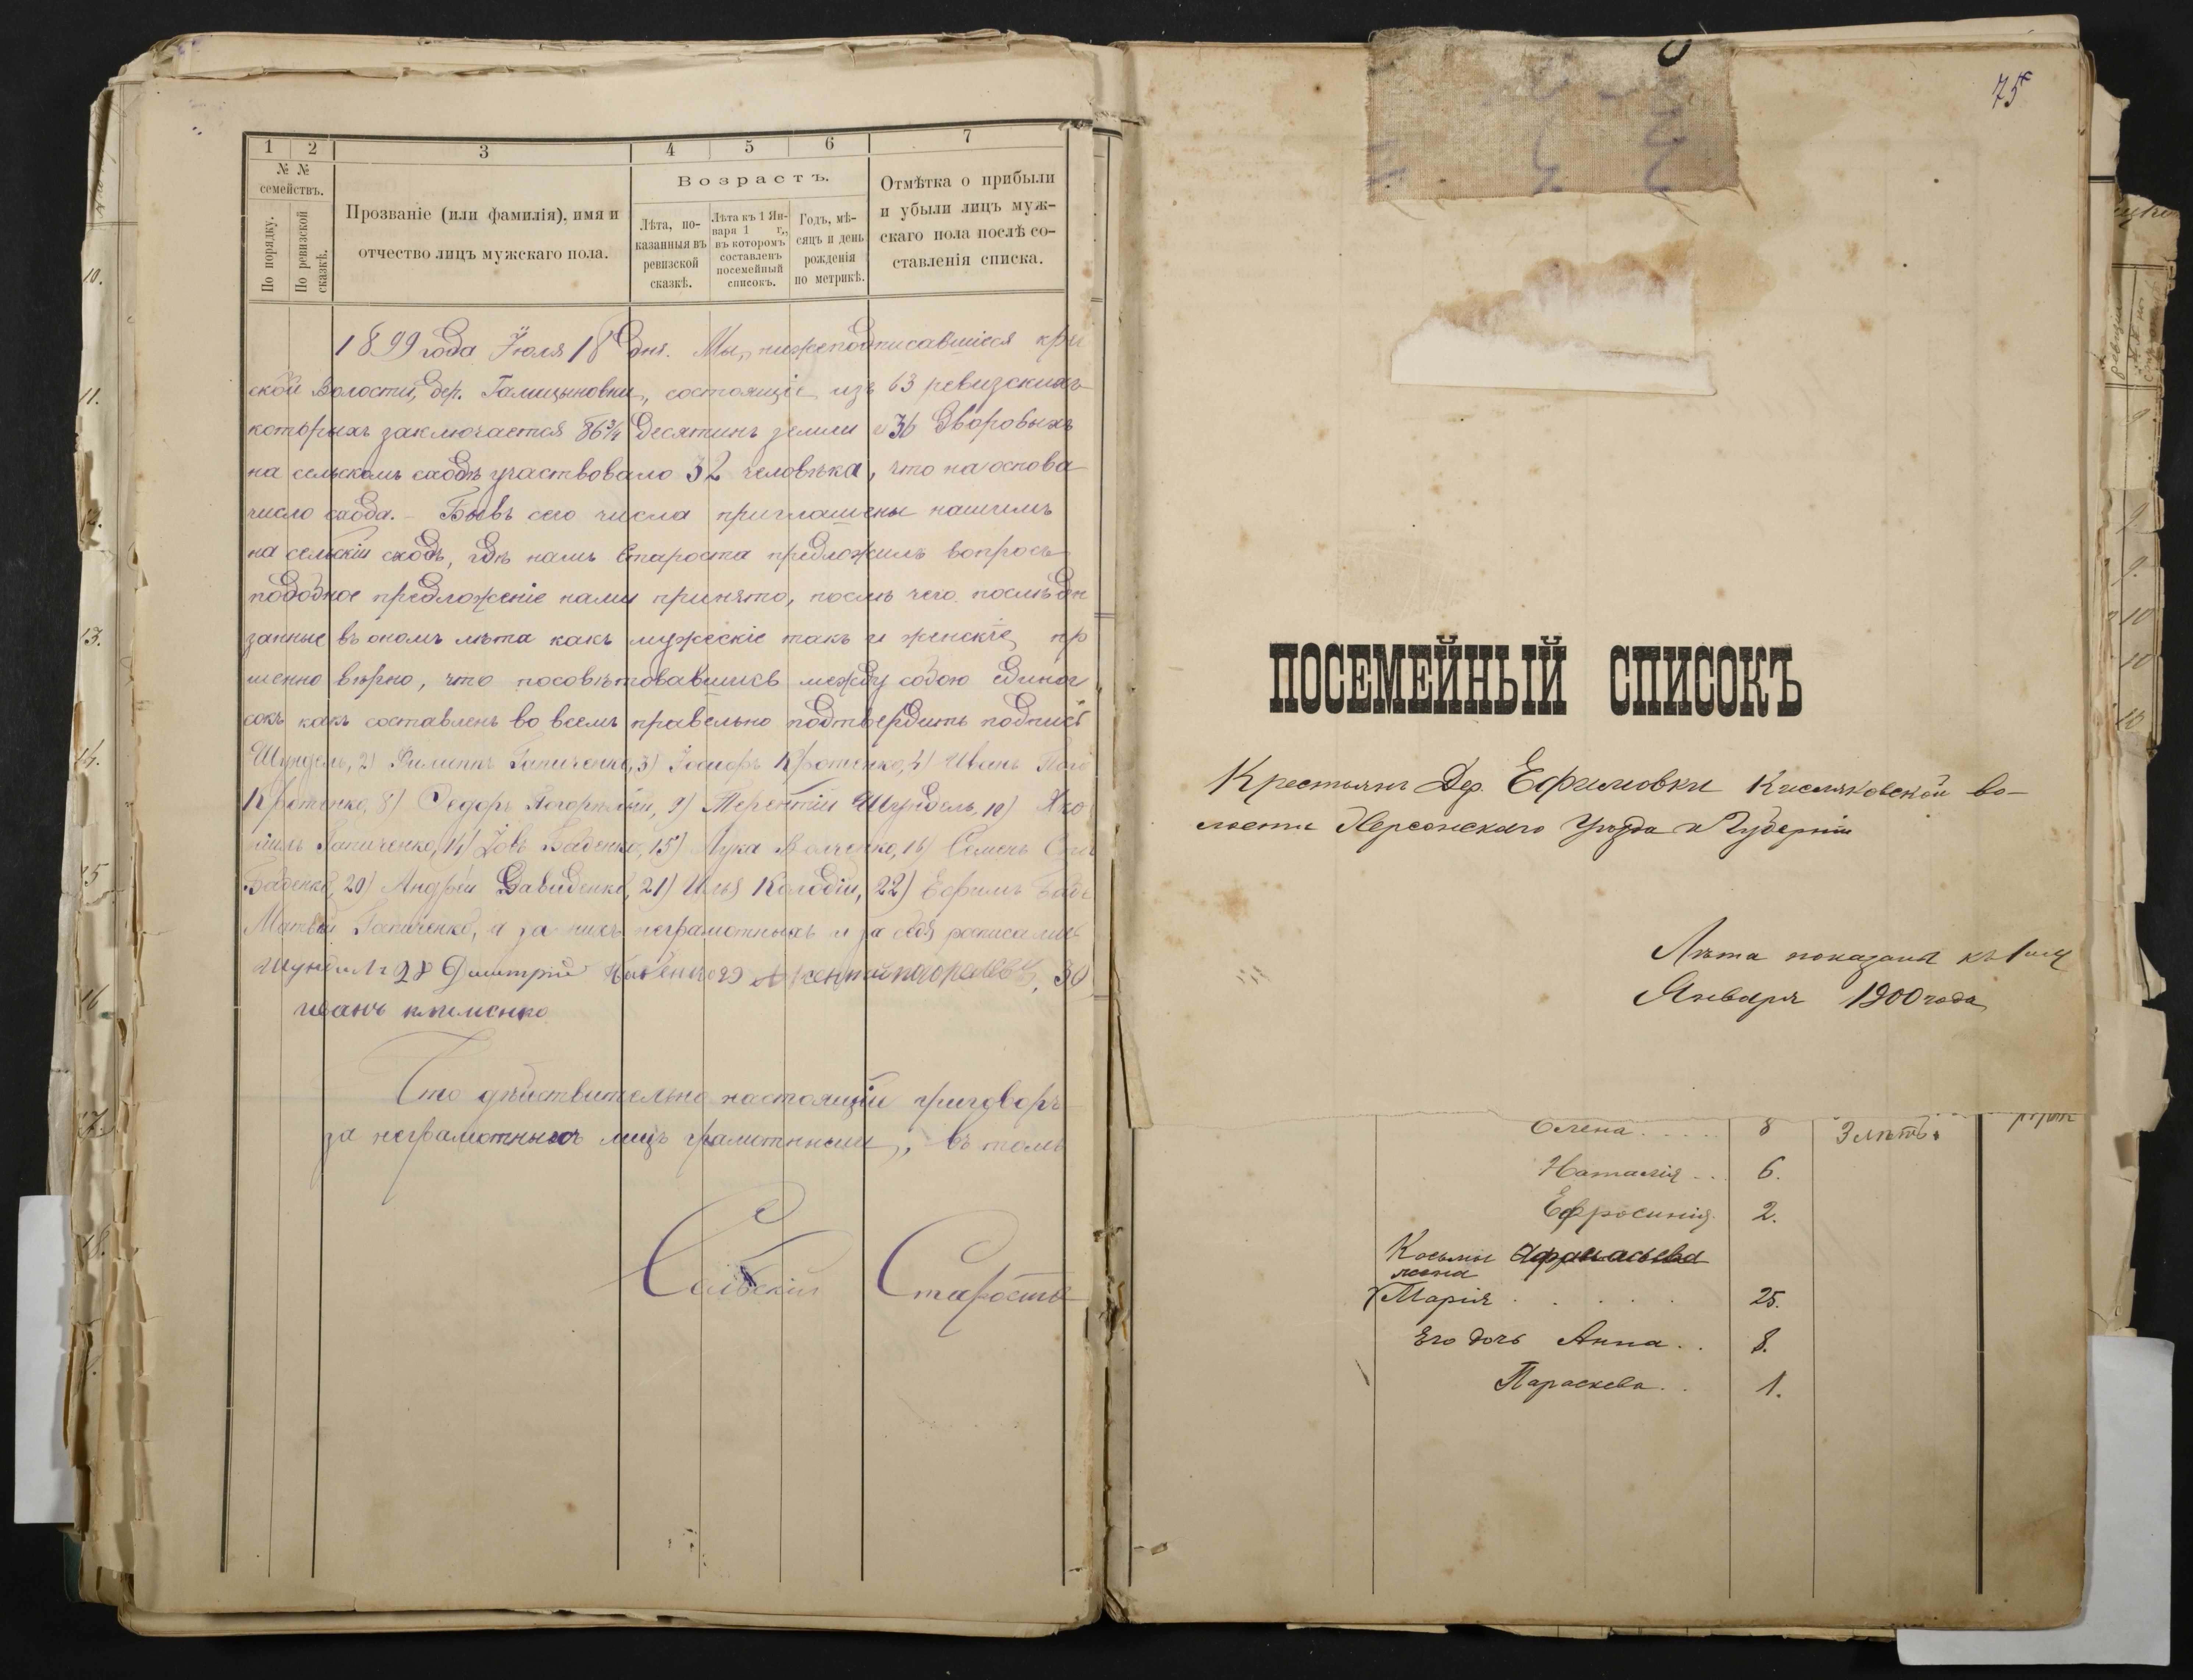 1 2 3 4 5 6 7
№ №
семействъ.
По порядку.
По ревизской
сказкѣ.
Прозваніе (или фамилія), имя и
отчество лицъ мужскаго пола.
Возрастъ.
Лѣта, по-
казанныя въ
ревизской
сказкѣ.
Лѣта къ 1 Ян-
варя 1 г.,
въ которомъ
составленъ
посемейный
списокъ.
Годъ, мѣ-
сяцъ и день
рожденія
по метрикѣ.
Отмѣтка о прибыли
и убыли лицъ муж-
скаго пола послѣ со-
ставленія списка.
1899 года Іюля 18 дня. Мы, нижеподписавшіеся кре
ской Волости, дер. Галицыновки, состоящіе изъ 63 ревизскихъ
которыхъ заключается 86¾ десятинъ земли и 36 дворовыхъ
на сельскомъ сходѣ участвовало 32 человѣка, что на основа
число схода. – Бывъ сего числа приглашены нашимъ
на сельскій сходъ, гдѣ нашъ Староста предложилъ вопросъ
подобное предложеніе нами принято, послѣ чего послѣдн
занные въ ономъ лѣта какъ мужескіе такъ и женскіе, пр
шенно вѣрно, что посовѣтовавшись между собою единог
сокъ какъ составленъ во всемъ правельно подтвердить подпис
Шундель, 2) Филиппъ Гапиченко, 3) Ѳеодоръ Кротенко, 4) Иванъ Пого
Кротенко, 8) Ѳедоръ Погорѣлый, 9) Терентій Шундель, 10) Яко
Гапиченко, 14) Іовъ Баденко, 15) Лука Волченко, 16) Семенъ
Баденко, 20) Андрей Давиденко, 21) Илья Колодій, 22) Ефимъ Баде
Матвѣй Гапиченко, а за нихъ неграмотныхъ и за себя росписались
Шундилъ 28 Дмитрій 30
иванъ клименко
Что дѣйствительно настоящій приговоръ
за неграмотныхъ лицъ грамотными, въ томъ
Сельскій Староста
75
ПОСЕМЕЙНЫЙ СПИСОКЪ
Крестьянъ Дер. Ефимовки Кисляковской во-
лости Херсонскаго Уѣзда и Губерніи
Лѣта показаны къ 1му
Января 1900 года
Олена 8 3 лѣтъ
Наталія 6.
Ефросинія 2.
Косьмы Афанасьева
жена
Марія 25.
Его дочь Анна 8.
Параскева 1.